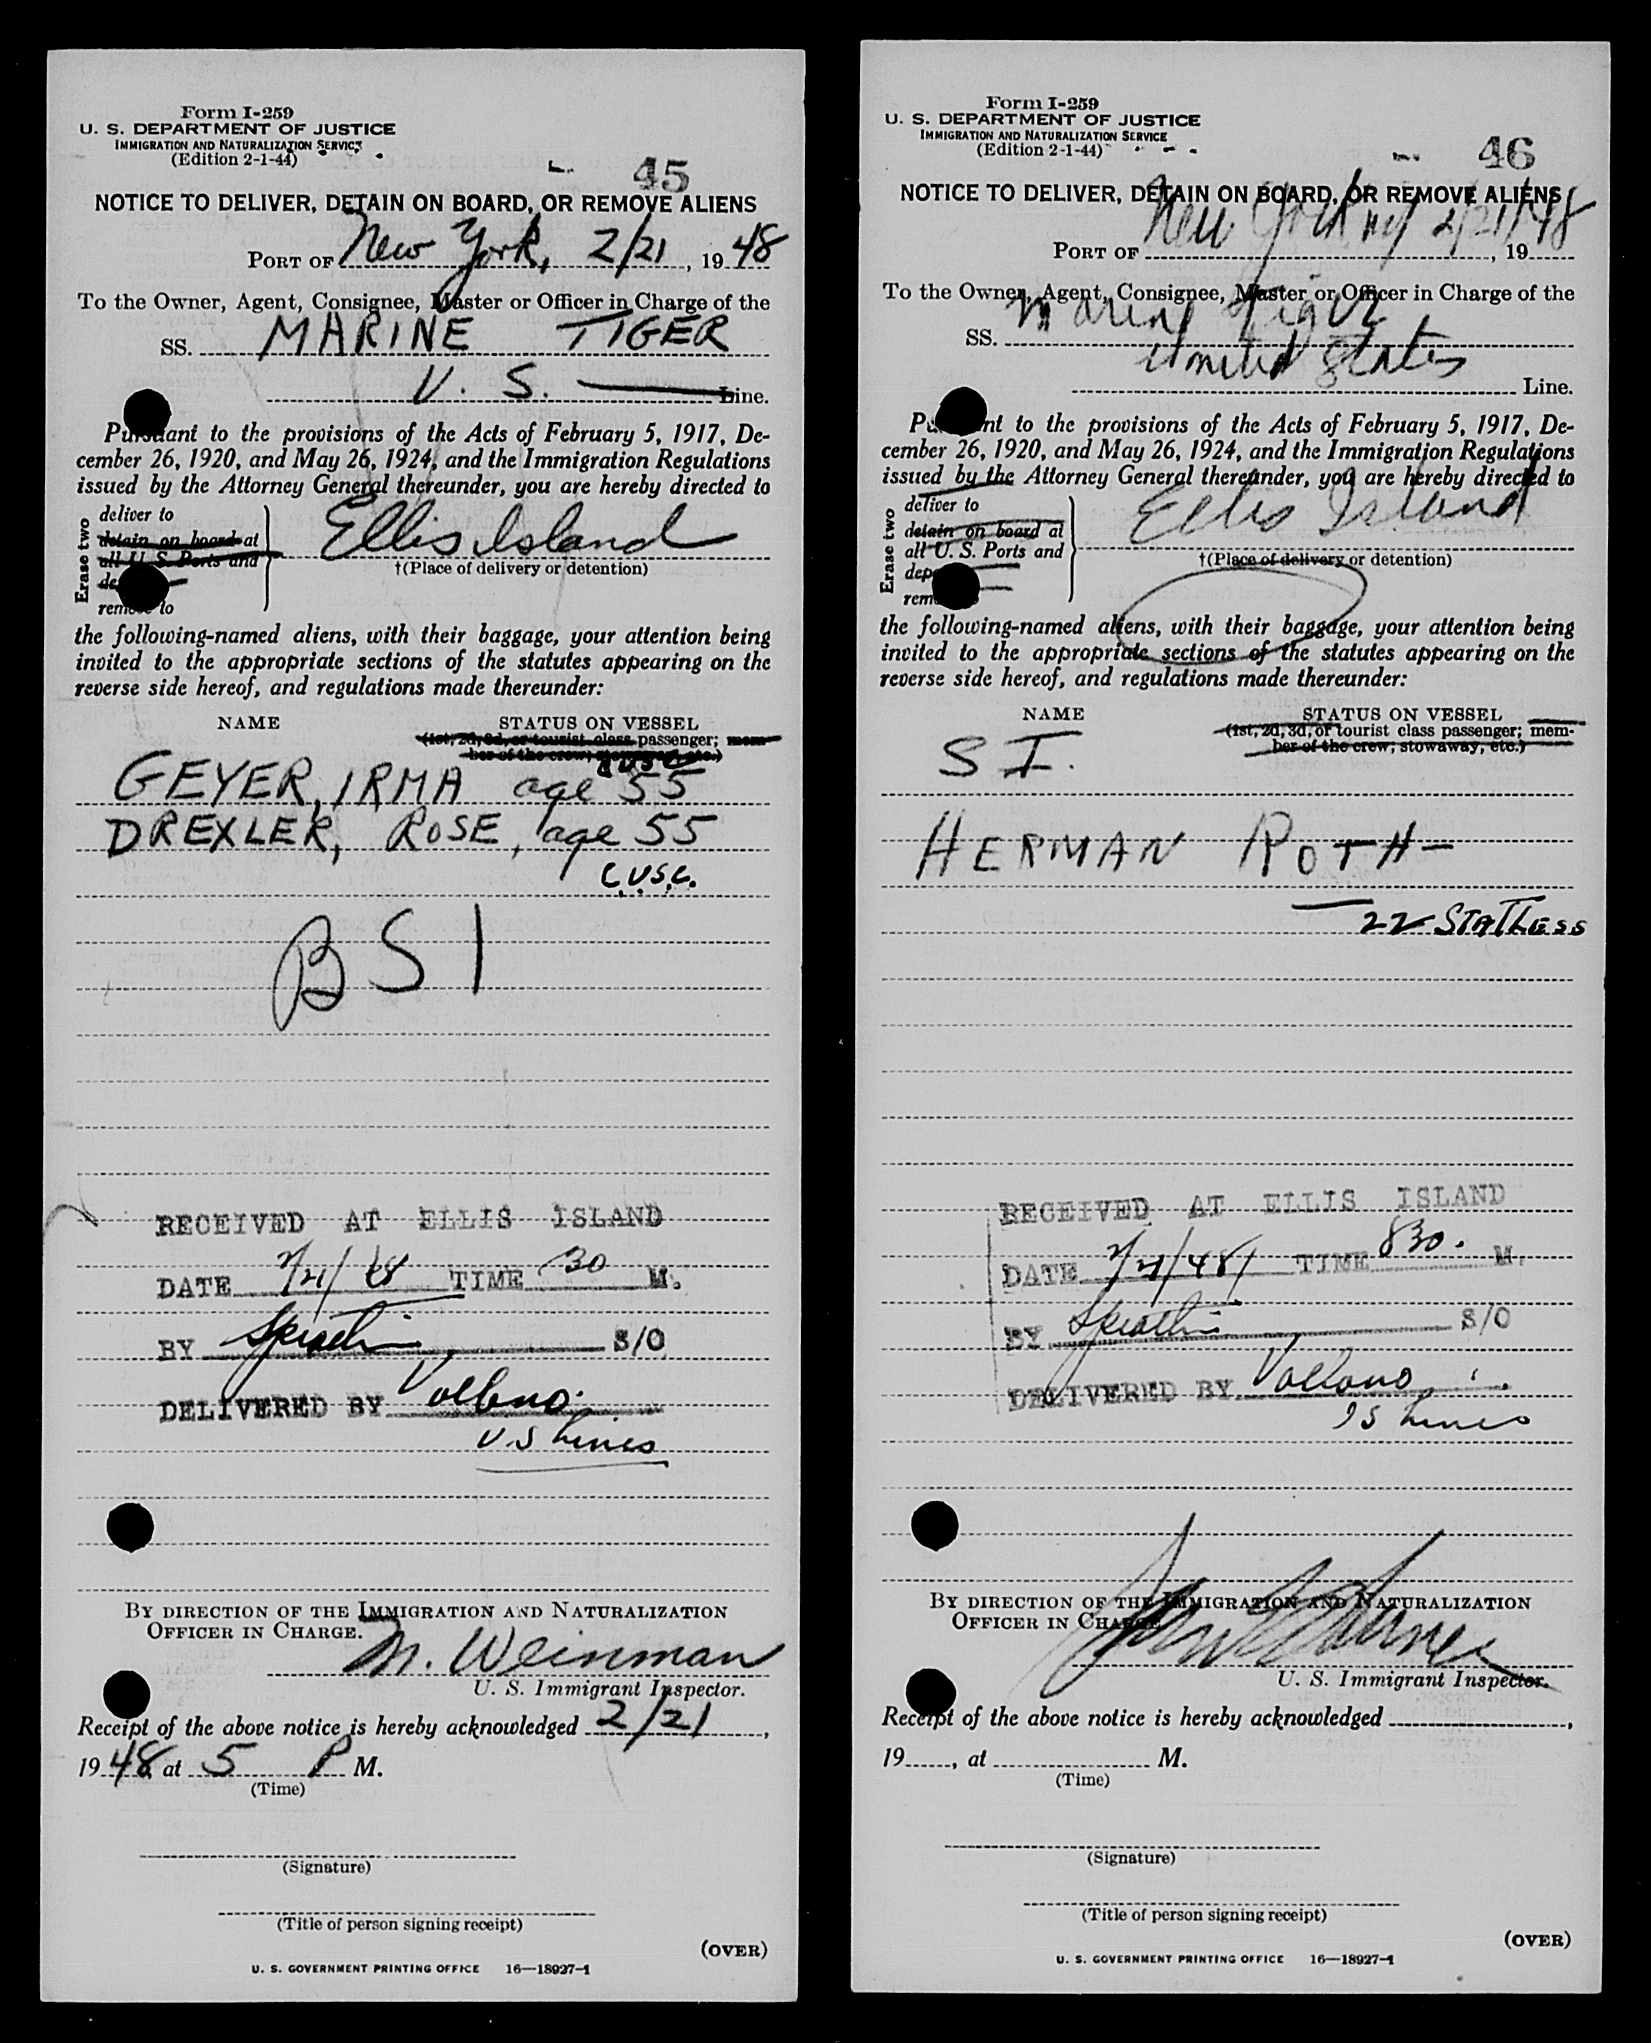 Form I-259
U. S. DEPARTMENT OF JUSTICE
IMMIGRATION AND NATURALIZATION SERVICE
(Edition 2-1-44)
45
NOTICE TO DELIVER, DETAIN ON BOARD, OR REMOVE ALIENS
PORT OF New York, 2/21, 1948
To the Owner, Agent, Consignee, Master or Officer in Charge of the
SS. MARINE TIGER
U. S. Line.
Pursuant to the provisions of the Acts of February 5, 1917, De-
cember 26, 1920, and May 26, 1924, and the Immigration Regulations
issued by the Attorney General thereunder, you are hereby directed to
Erase two
deliver to
detain on board at
all U. S. Ports and
remove to
Ellis Island
†(Place of delivery or detention)
the following-named aliens, with their baggage, your attention being
invited to the appropriate sections of the statutes appearing on the
reverse side hereof, and regulations made thereunder:
NAME STATUS ON VESSEL
(1st, 2d, 3d, or tourist class passenger; mem-
ber of the crew; stowaway, etc.)
GEYER, IRMA age 55
DREXLER, ROSE, age 55
C.U.S.C.
BSI
RECEIVED AT ELLIS ISLAND
DATE 2/21/48 TIME 30 M.
BY S/O
DELIVERED BY
U.S Lines
BY DIRECTION OF THE IMMIGRATION AND NATURALIZATION
OFFICER IN CHARGE.
M. Weinman
U. S. Immigrant Inspector.
Receipt of the above notice is hereby acknowledged 2/21,
1948 at 5 P M.
(Time)
(Signature)
(Title of person signing receipt)
(OVER)
U. S. GOVERNMENT PRINTING OFFICE 16—18927-1
Form I-259
U. S. DEPARTMENT OF JUSTICE
IMMIGRATION AND NATURALIZATION SERVICE
(Edition 2-1-44)
46
NOTICE TO DELIVER, DETAIN ON BOARD, OR REMOVE ALIENS
New York NY 2/21/48
PORT OF , 19
To the Owner, Agent, Consignee, Master or Officer in Charge of the
SS. Marine Tiger
United States
Line.
Pursuant to the provisions of the Acts of February 5, 1917, De-
cember 26, 1920, and May 26, 1924, and the Immigration Regulations
issued by the Attorney General thereunder, you are hereby directed to
Erase two
deliver to
detain on board at
all U. S. Ports and
Ellis Island
†(Place of delivery or detention)
the following-named aliens, with their baggage, your attention being
invited to the appropriate sections of the statutes appearing on the
reverse side hereof, and regulations made thereunder:
NAME STATUS ON VESSEL
(1st, 2d, 3d, or tourist class passenger; mem-
ber of the crew; stowaway, etc.)
S I.
HERMAN ROTH —
22 STATLESS
RECEIVED AT ELLIS ISLAND
DATE 2/21/48 TIME 830. M.
BY S/O
DELIVERED BY
Lines
BY DIRECTION OF THE IMMIGRATION AND NATURALIZATION
OFFICER IN CHARGE.
U. S. Immigrant Inspector.
Receipt of the above notice is hereby acknowledged ,
19 , at M.
(Time)
(Signature)
(Title of person signing receipt)
(OVER)
U. S. GOVERNMENT PRINTING OFFICE 16—18927-1